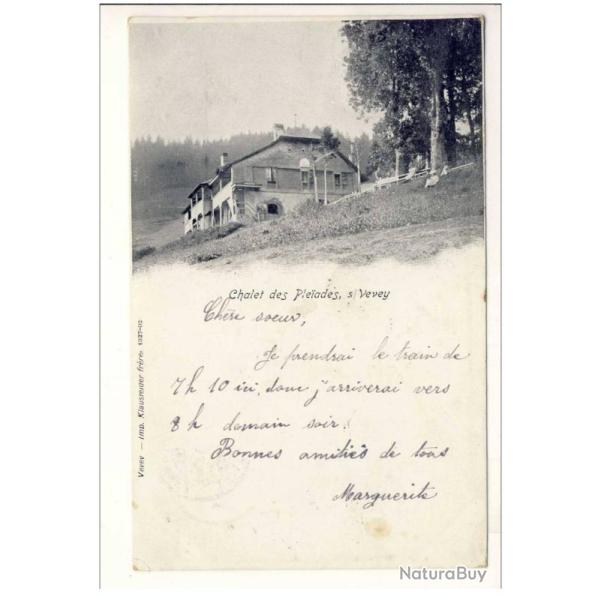 Chalet des Pleïades, s/Vevey
Chère soeur,
Je prendrai le train de
7 h 10 ici, donc j'arriverai vers
8 h demain soir.
Bonnes amitiés de tous
Marguerite
Vevey — Imp. Klausfelder frères
NaturaBuy